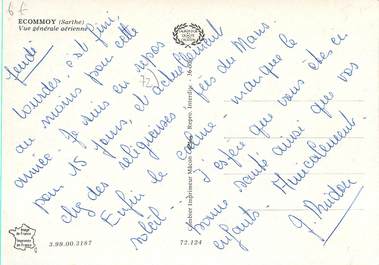 6 F
ECOMMOY (Sarthe)
Vue générale aérienne
Jeudi
Lourdes, c'est fini,
au moins pour cette
année. Je suis en repos
pour 15 jours, et actuellement
chez des religieuses
près du Mans.
Enfin le calme - manque le
soleil -
J'espère que vous êtes en
bonne santé ainsi que vos
enfants - Amicalement -
72
Combier Imprimeur Mâcon
Repro. Interdite
Image de France
Imprimée en France
3.99.00.3187
72.124